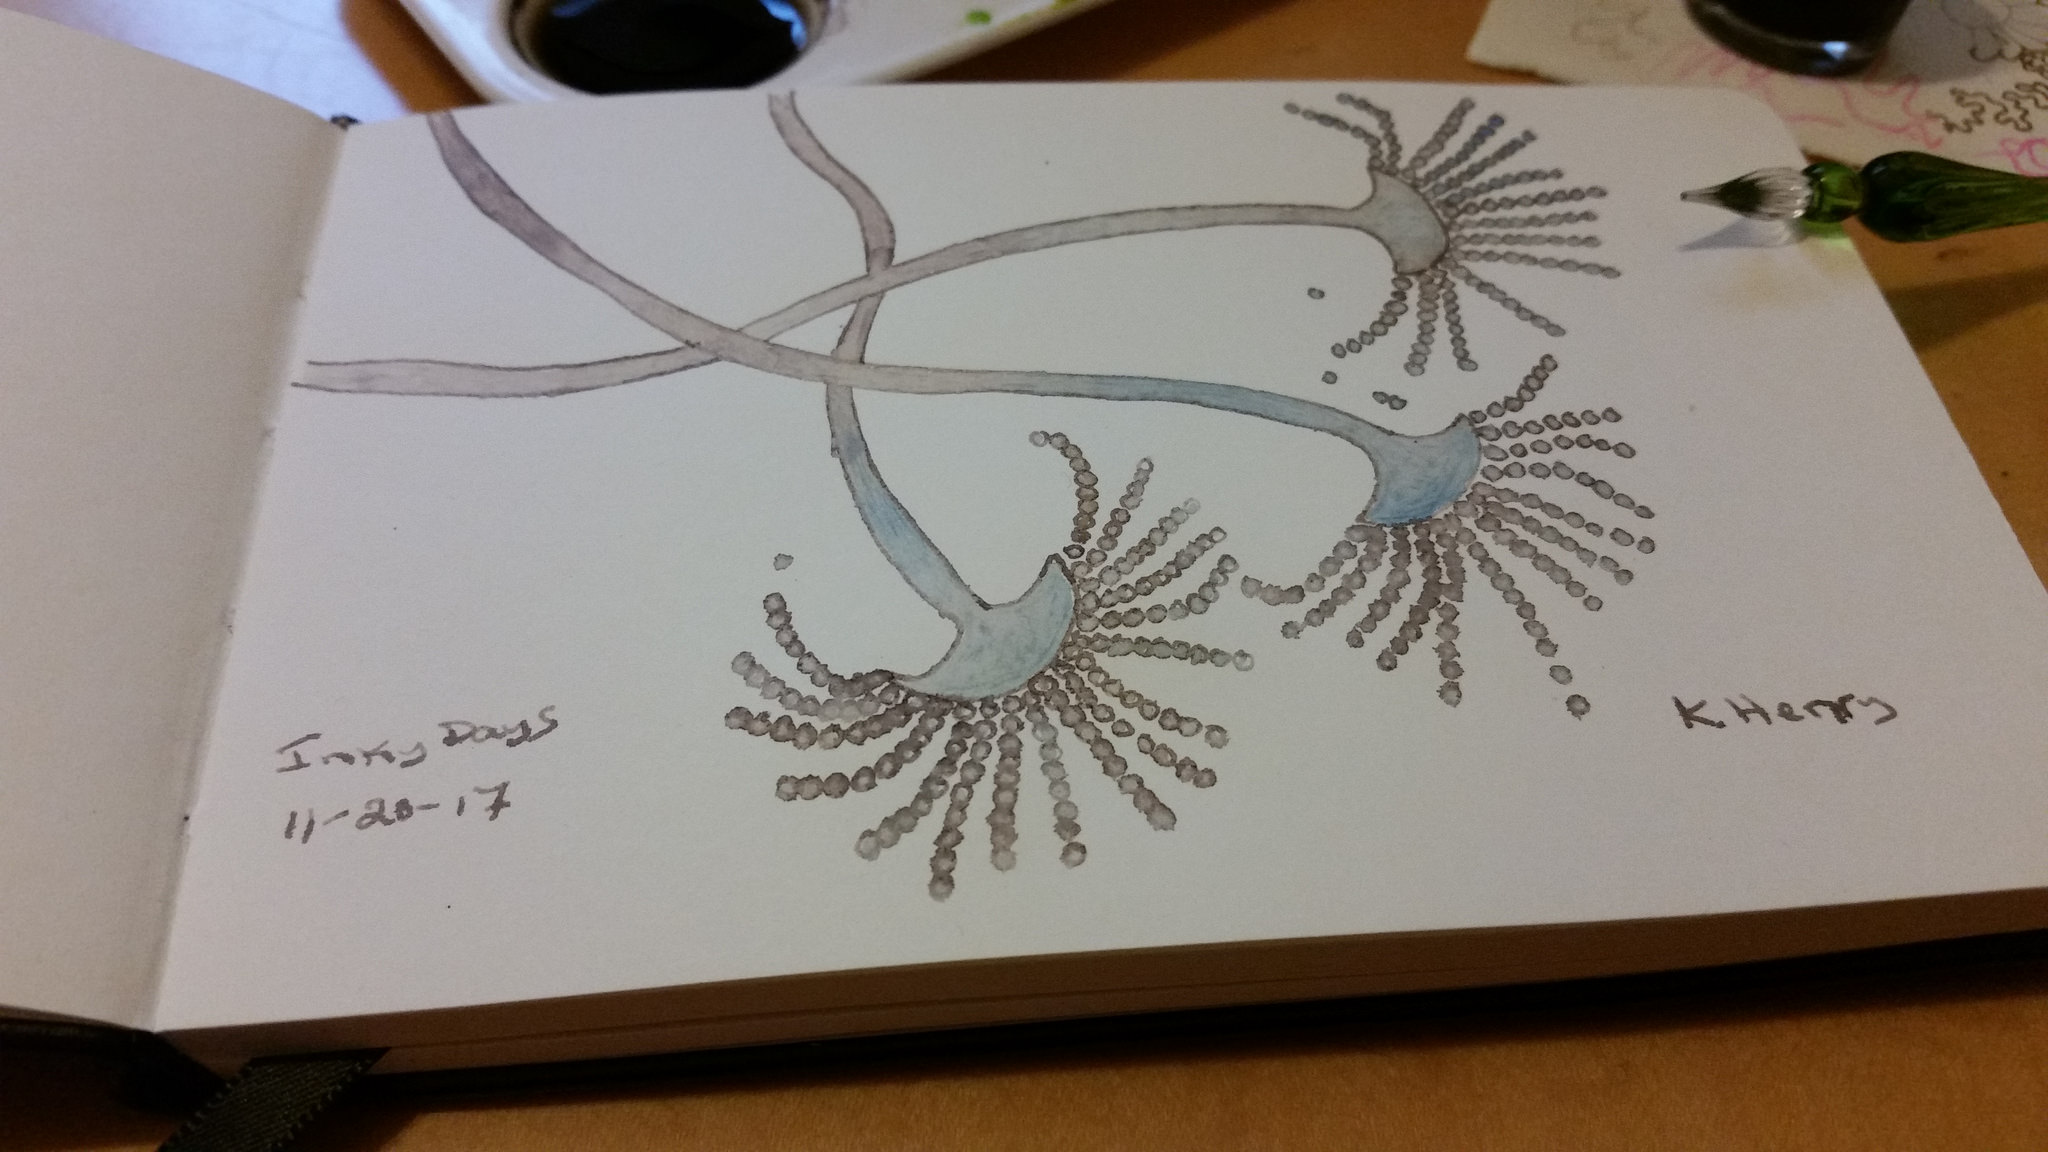 Inky Days
11-20-17
K Henry